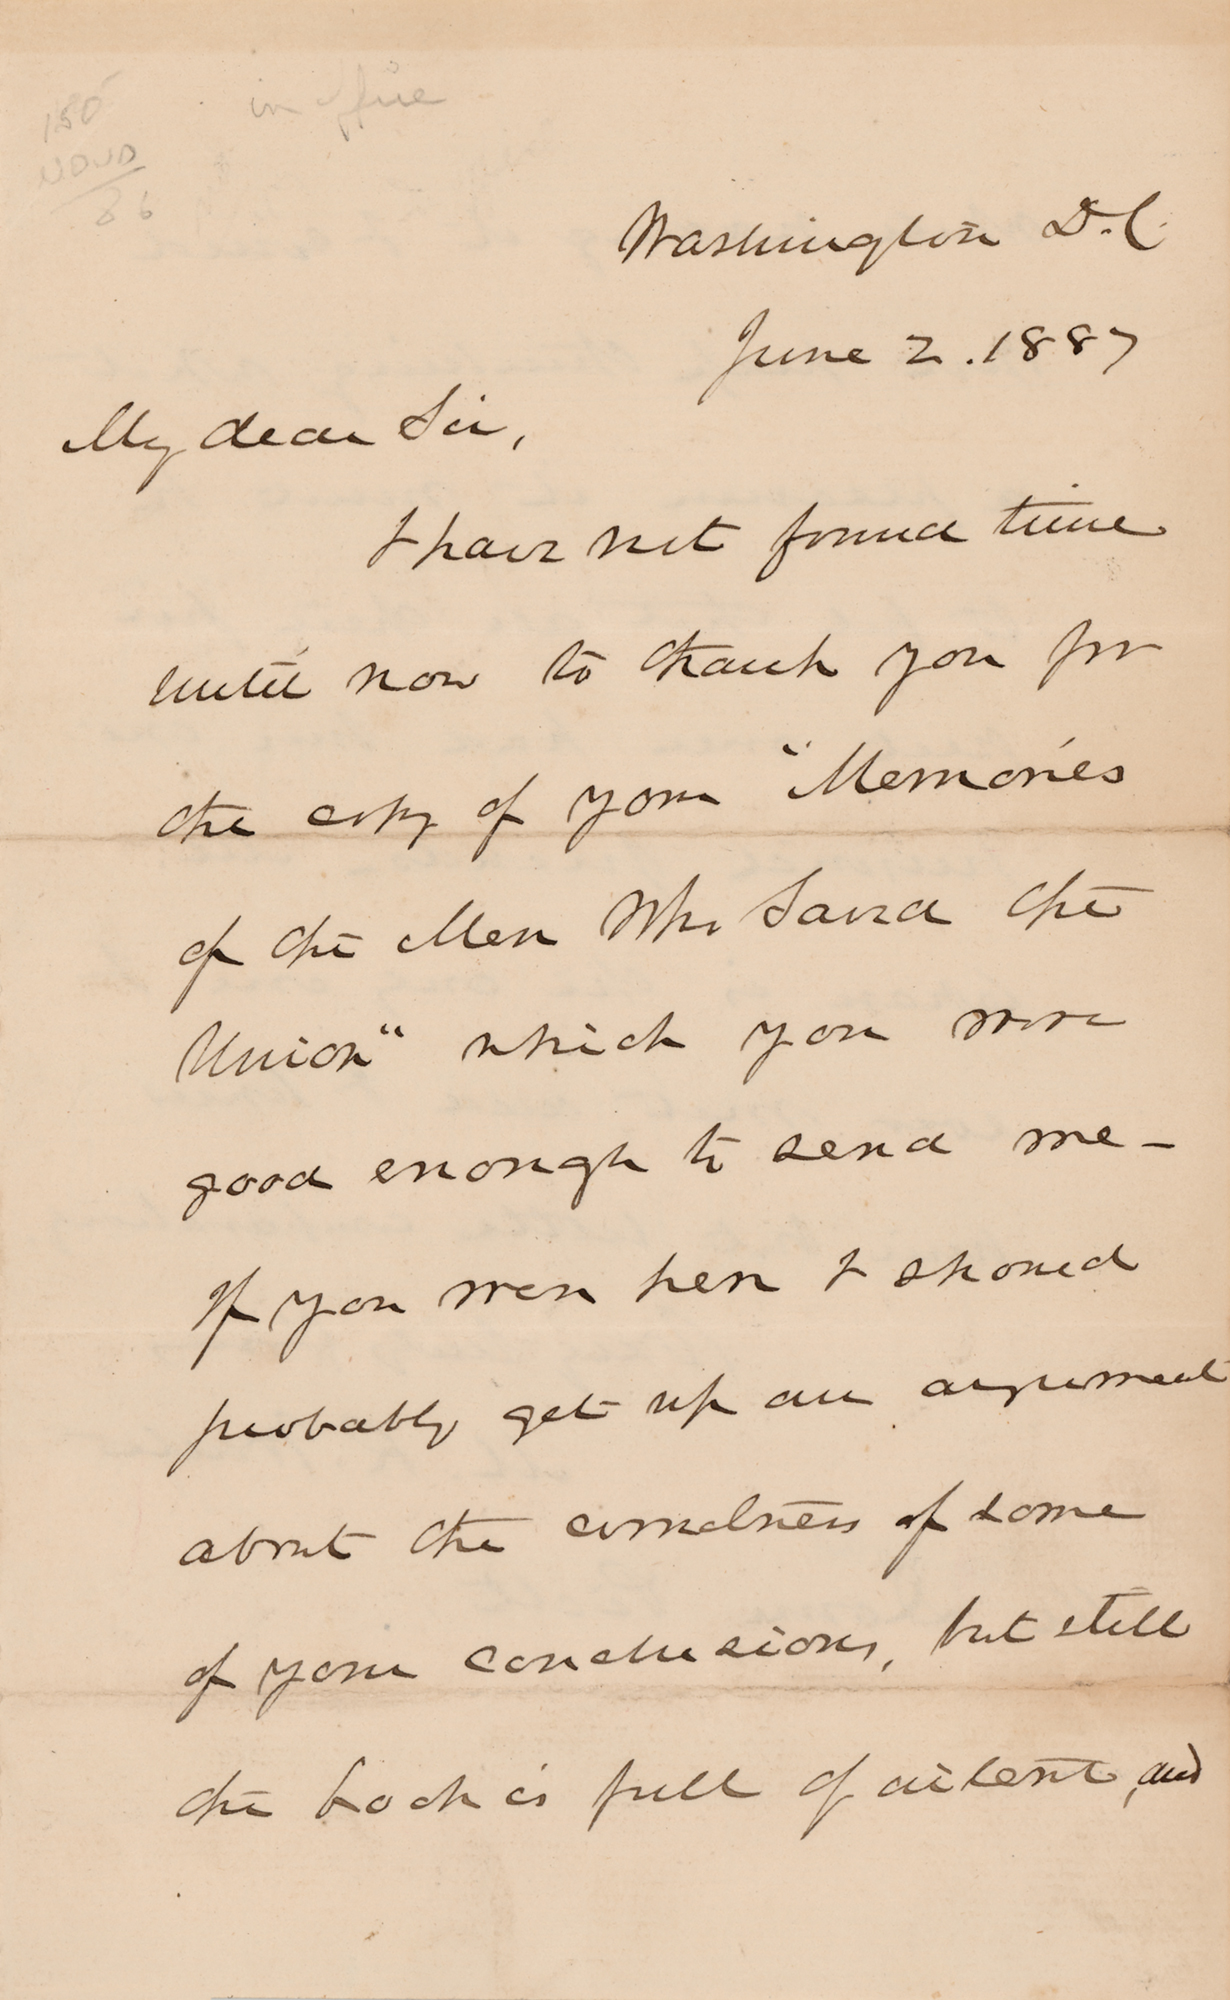 150
in office
86
Washington D.C.
June 2. 1887
My dear Sir,
I have not found time
until now to thank you for
the copy of your "Memories
of the Men Who Saved the
Union" which you were
good enough to send me –
If you were here I should
probably get up an argument
about the correctness of some
of your conclusions, but still
the book is full of interest, and